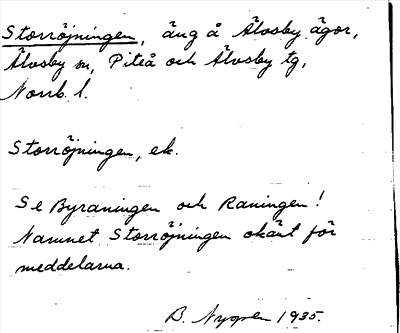 Storröjningen, äng å Älvsby ägor,
Älvsby sn, Piteå och Älvsby tg,
Norrb. l.
Storröjningen, ek.
Se Byraningen och Raningen!
Namnet Storröjningen okänt för
meddelarna.
B. Nygren 1935.